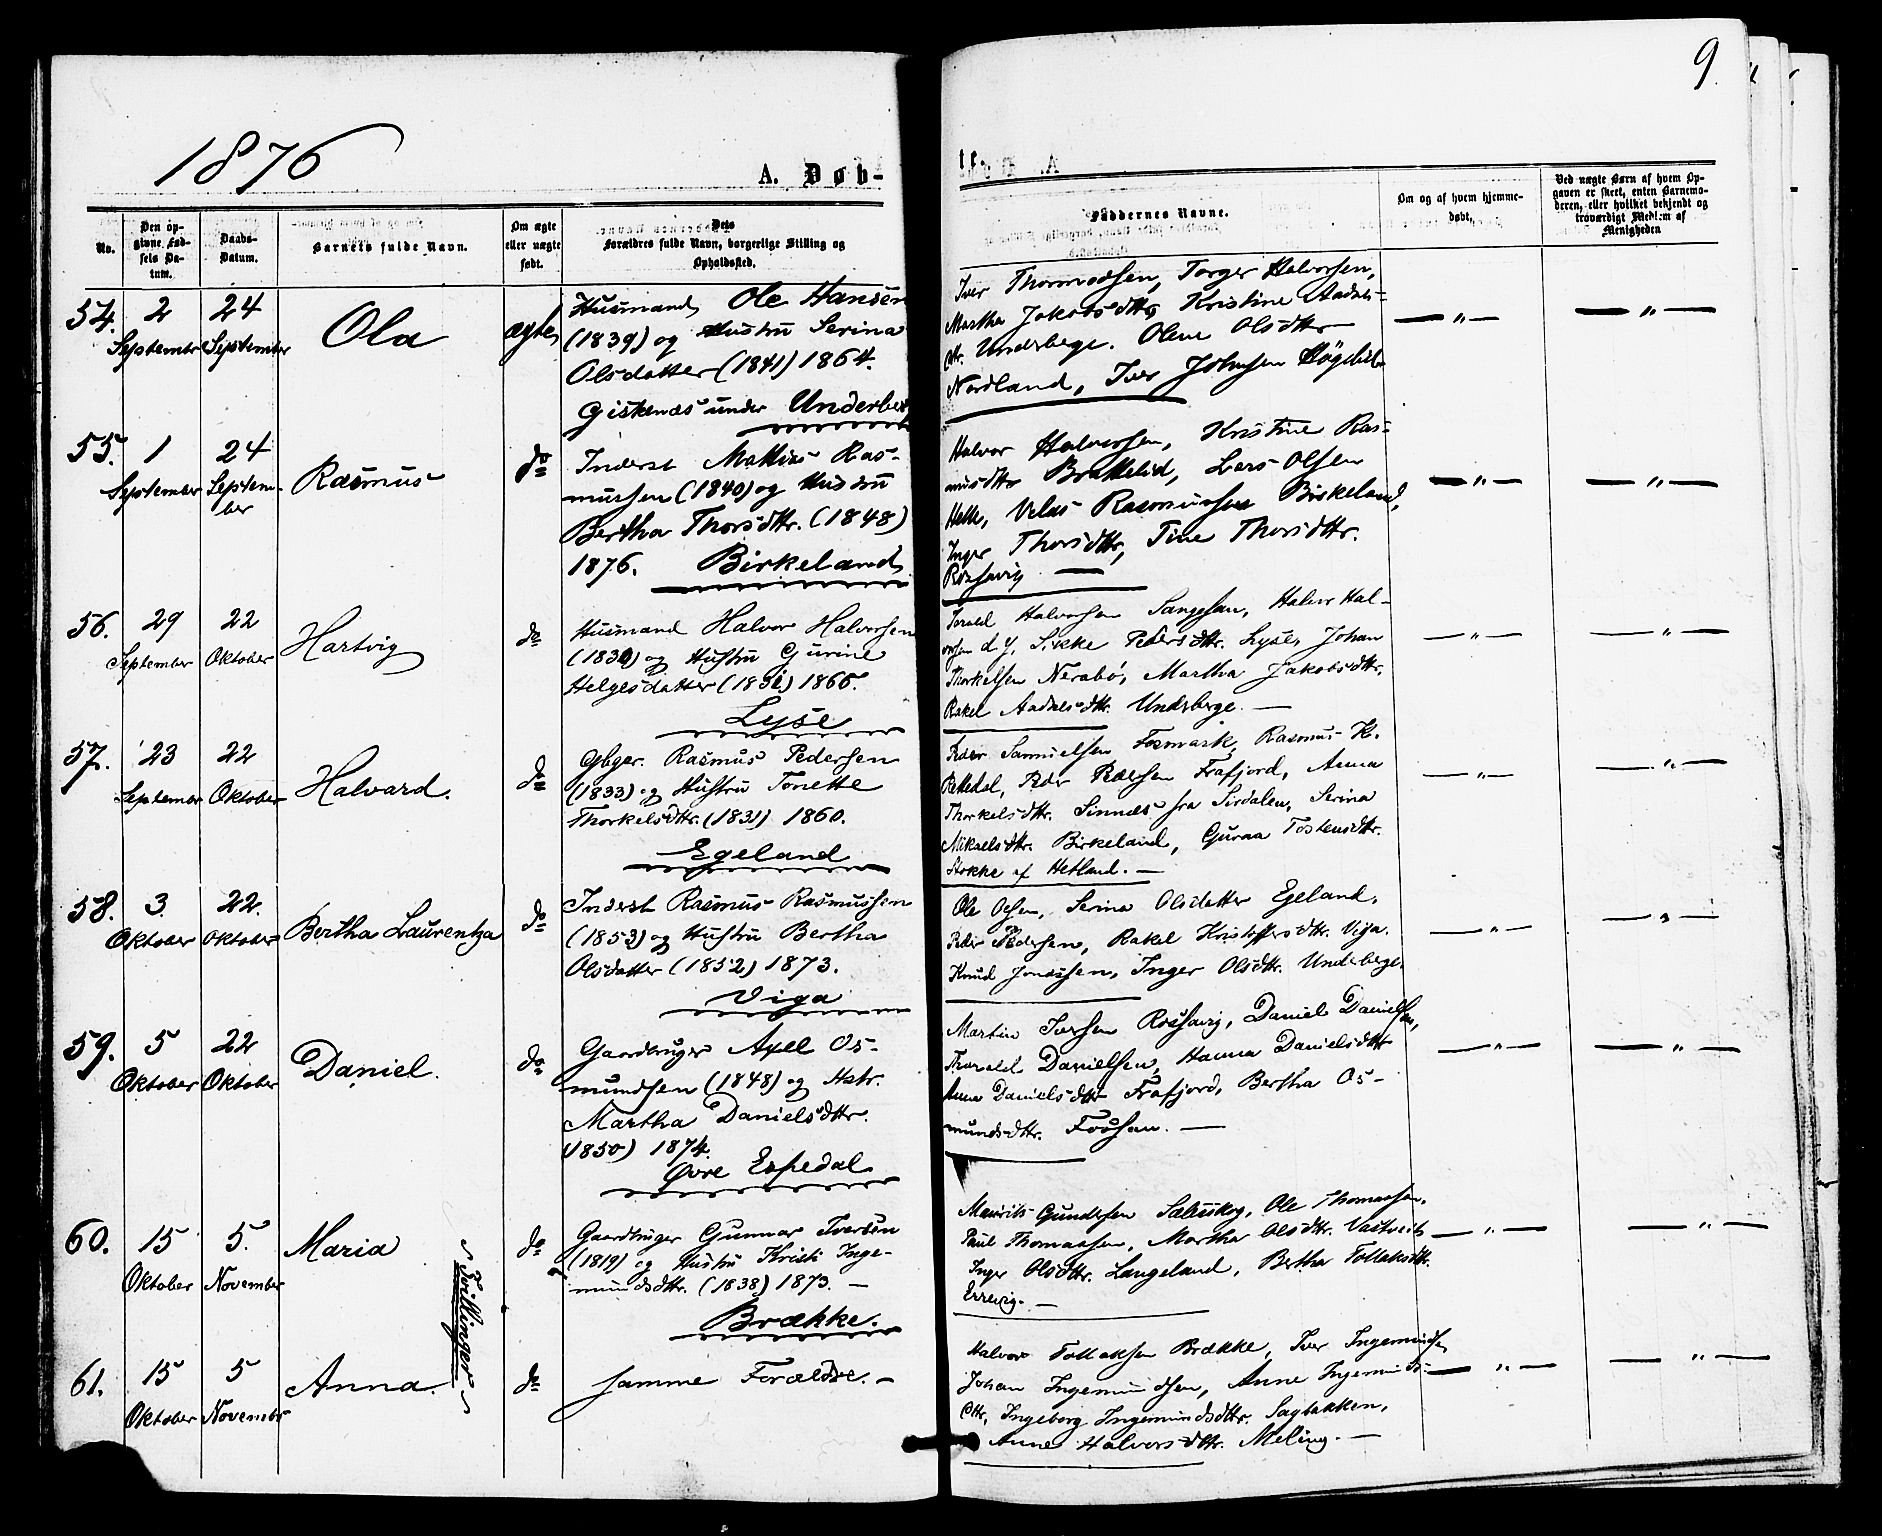 9.
1876
A. Døb-
te.
No.
Den op-
givne Fød-
sels Da-
tum.
Daabs-
Datum.
Barnets fulde Navn.
Om ægte
eller uægte
født.
Dets
Forældres fulde Navn, borgerlige Stilling og
Opholdssted.
Faddernes Navne.
Om og af hvem hjemme-
døbt,
Ved uægte Børn af hvem Op-
gaven er skeet, enten Barnemo-
deren, eller hvilket bekjendt og
troværdigt Medlem af
Menigheden
54. 2 24
September September
Ola
ægte
Husmand Ole Hansen
(1839) og Hustru Serina
Olsdatter (1841) 1864.
Giskenæs under Underberg
Iver Thormodsen, Torger Halvorsen,
Martha Jakobsdttr, Kristine Aadnes-
dtr. Underberge. Olene Olsdttr
Nordland, Iver Johnsen Høgelid
— " — — " —
55. 1 24
September Septem-
ber
Rasmus
do
Inderst Mathias Ras-
mussen (1840) og Hustru
Bertha Thorsdttr. (1848)
1876. Birkeland
Halvor Halvorsen, Kristine Ras-
musdttr Brattelid, Lars Olsen
Helle, Velas Rasmussen Birkeland,
Inger Thorsdttr, Tine Thorsdttr.
Rossavig —
— " — — " —
56. 29 22
September Oktober
Hartvig
do
Husmand Halvor Halvorsen
(1830) og Hustru Gurine
Helgesdatter (1831) 1866.
Lyse
Torald Halvorsen Sangesan, Halvor Hal-
vorsen d. y. Sikke Pedersdttr. Lyse, Johan
Thorkelsen Nerabø, Martha Jakobsdttr.
Rakel Aadnesdttr. Underberge. —
— " — — " —
57. 23 22
September Oktober
Halvard.
do
Gbger. Rasmus Pedersen
(1833) og Hustru Tonette
Thorkelsdttr. (1831) 1860.
Egeland
Peder Samuelsen Fosmark, Rasmus K.
Rettedal, Peder Pedersen Frafjord, Anna
Thorkelsdttr. Sinnæs fra Sirdalen, Serina
Mikaelsdttr. Birkeland, Guroa Tostensdttr.
Stokke af Hetland. —
— " — — " —
58. 3. 22.
Oktober Oktober
Bertha Laurentza
do
Inderst Rasmus Rasmussen
(1853) og Hustru Bertha
Olsdatter (1852) 1873.
Viga
Ole Olsen, Serina Olsdatter Egeland,
Peder Pedersen, Rakel Kristoffersdttr. Viga.
Knud Jonassen, Inger Olsdttr. Underberge.
— " — — " —
59. 5 22
Oktober Oktober
Daniel.
do
Gaardbruger Axel Os-
mundsen (1848) og Hstr.
Martha Danielsdttr.
(1850) 1874.
Øvre Espedal
Martin Iversen Rossavig, Daniel Danielsen,
Thorald Danielsen, Hanna Danielsdttr
Anna Danielsdttr Frafjord, Bertha Os-
mundsdttr. Fossan. —
— " — — " —
60. 15 5.
Oktober November
Maria
do
Gaardbruger Gunnar Iversen
(1819) og Hustru Kristi Inge-
mundsdttr. (1838) 1873. —
Brække.
Maurits Gundersen Sæleskog, Ole Thomassen,
Paul Thomassen, Martha Olsdttr. Vastveit
Inger Olsdttr. Langeland, Bertha Tollaksdttr.
Errevig. —
— " — — " —
Tvillinger
61. 15 5
Oktober November
Anna.
do
samme Forældre. —
Halvor Tollaksen Brække, Iver Ingemundsen
Johan Ingemundsen, Anne Ingemunds-
dttr, Ingeborg Ingemundsdttr. Sagbakken,
Anne Halvorsdttr. Meling. —
— " — — " —